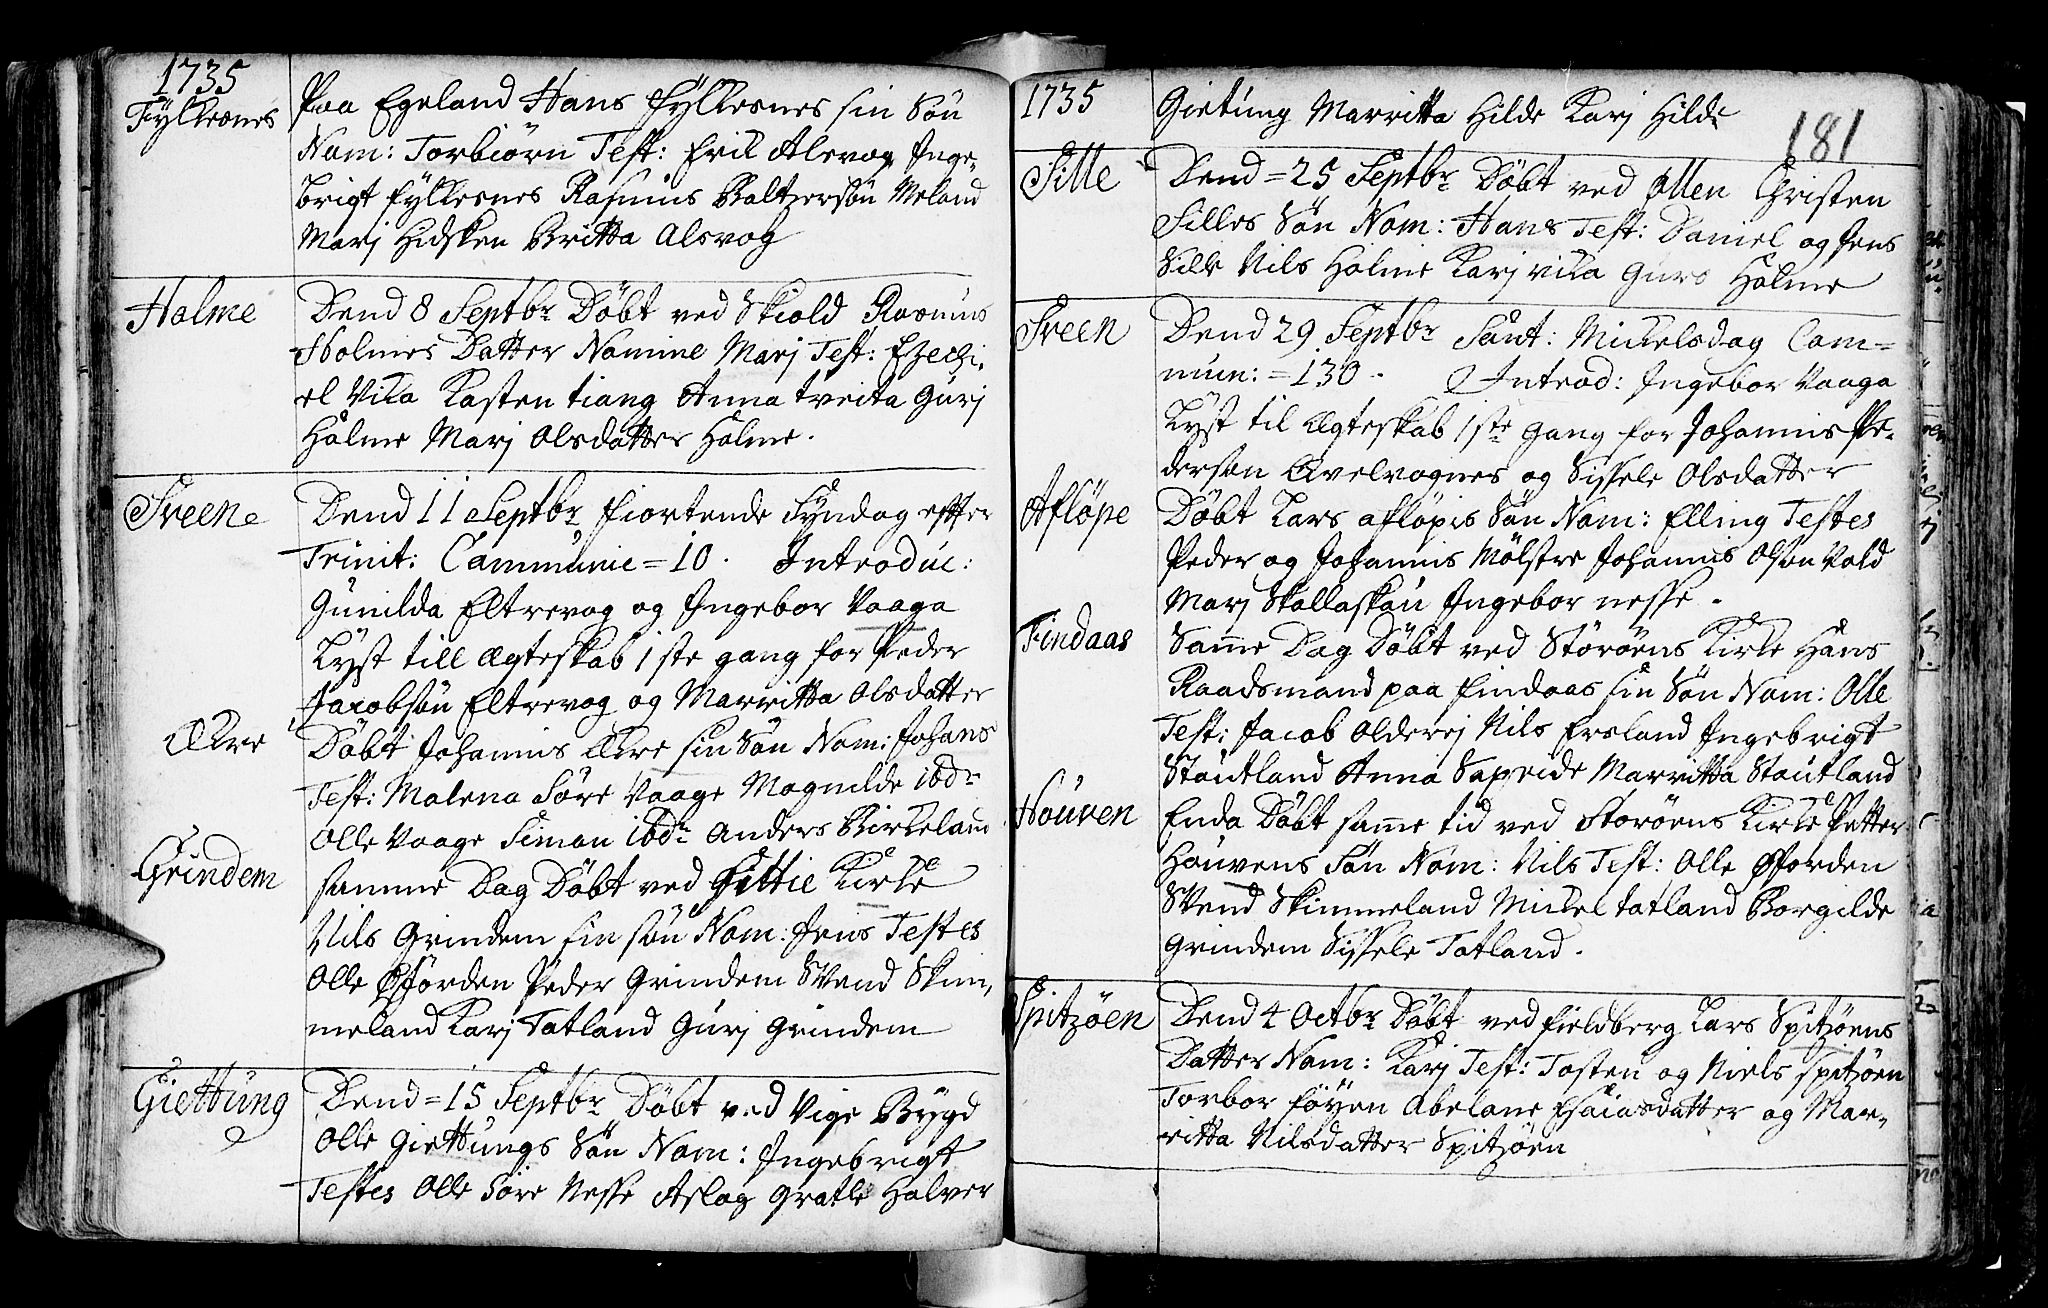 1735
Fylkesnes
Paa Egeland Hans Fylkesnes sin Søn
Nom: Torbiørn Test: Erik Alsvog Inge-
brigt Fylkesnes Rasmus Baltzersøn Meland
Marj Hidsken Britta Alsvog
Holme
Dend 8 Septbr Døbt ved Skiold Rasmus
Holmes Datter Nomine Marj Test: Ezechi-
el Vika Kasten tiang Anna tveita Gurj
Holme Marj Olsdatter Holme.
Sveen
Dend 11 Septbr fiortende Syndag effter
Trinit: Communic = 10. Introduc:
Gunilda Eltrevog og Ingebor Vaaga
Lyst till Ægteskab 1ste gang for Peder
Jacobsøn Eltrevog og Marritta Olsdatter
Økre
Døbt Johannis Økre sin Søn Nom: Johans
Test: Malena Søre Vaage Magnilde ibdm
Olle Vaage Simon ibdm Anders Birkeland
Grindem
samme Dag Døbt ved Fittie Kirke
Nils Grindem sin søn Nom: Jens Testes
Olle Øfiorden Peder Grindem Svend Skim-
meland Karj Tatland Gurj Grindem
Giettung
Dend = 15 Septbr Døbt ved Vige Bygd
Olle Giettungs Søn Nom: Ingebrigt
Testes Olle Søre Nesse Aslag Gratle Halver
1735
181
Gietung Marritta Hilde Karj Hilde
Sille
Dend = 25 Septbr Døbt ved Ølen Christen
Silles Søn Nom: Hans Test: Daniel og Jens
Sille Nils Holme Karj vika Guro Holme
Sveen
Dend 29 Septbr Sant: Mickelsdag Com=
mun: = 130. Introd: Ingebor Vaaga
Lyst til Ægteskab 1ste gang for Johannis Pe-
dersøn Qvelvognes og Sissele Olsdatter
Afløpe
Døbt Lars afløpis Søn Nom: Elling Testes
Peder og Johannis Mølstre Johannis Olsøn Vold
Marj Skallaskou Ingebor nesse.
Findaas
Same Dag Døbt ved Størøens Kirke Hans
Raadsmand paa Findaas sin Søn Nom: Olle
Test: Jacob Olderej Nils Ersland Ingebrigt
Stoutland Anna Sapreide Marritta Stoutland
Houven
Enda Døbt same tid ved Storøens Kirke Petter
Houvens Søn Nom: Nils Test: Olle Øfiorden
Svend Skimmeland Mickel tatland Borgilde
Grindem Sissele Tatland.
Spitzøen
Dend 4 Octbr Døbt ved Fieldberg Lars Spitzøens
Datter Nom: Karj Test: Tosten og Niels Spitzøen
Torbor Føyen Abelone Esaiasdatter og Mar-
ritta Nilsdatter Spitzøen